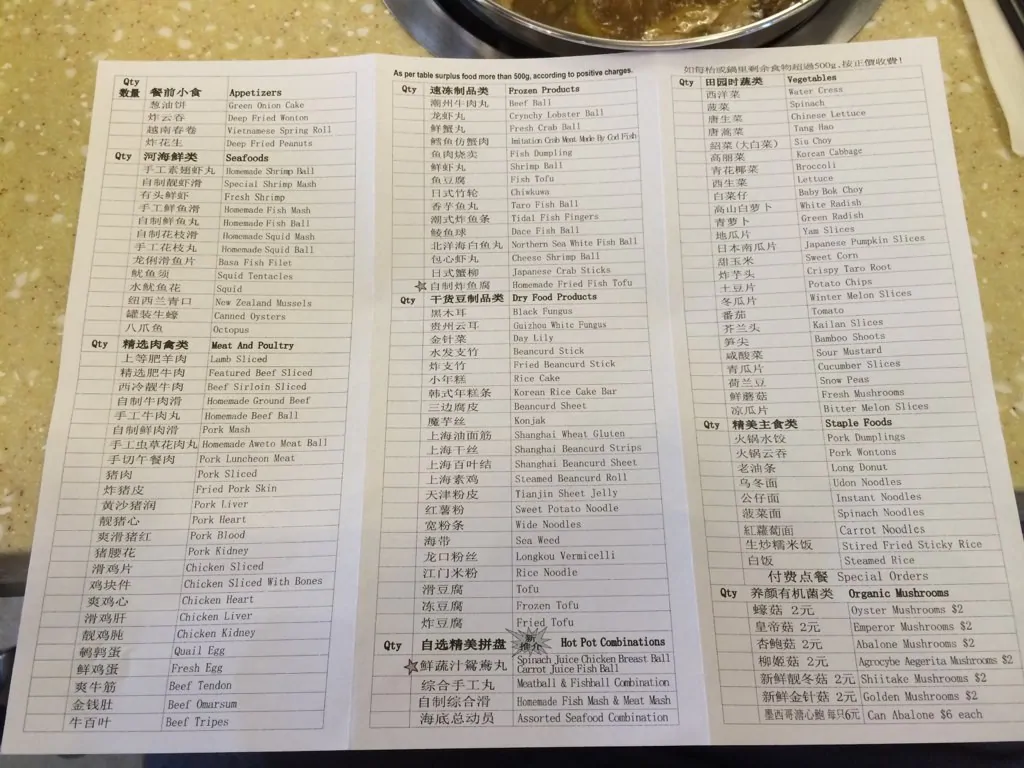 Qty 数量 餐前小食 Appetizers
葱油饼 Green Onion Cake
炸云吞 Deep Fried Wonton
越南春卷 Vietnamese Spring Roll
炸花生 Deep Fried Peanuts
Qty 河海鲜类 Seafoods
手工素翅虾丸 Homemade Shrimp Ball
自制靓虾滑 Special Shrimp Mash
有头鲜虾 Fresh Shrimp
手工鲜鱼滑 Homemade Fish Mash
自制鲜鱼丸 Homemade Fish Ball
自制花枝滑 Homemade Squid Mash
手工花枝丸 Homemade Squid Ball
龙俐滑鱼片 Basa Fish Filet
鱿鱼须 Squid Tentacles
水鱿鱼花 Squid
纽西兰青口 New Zealand Mussels
罐装生蠔 Canned Oysters
八爪鱼 Octopus
Qty 精选肉禽类 Meat And Poultry
上等肥羊肉 Lamb Sliced
精选肥牛肉 Featured Beef Sliced
西冷靓牛肉 Beef Sirloin Sliced
自制牛肉滑 Homemade Ground Beef
手工牛肉丸 Homemade Beef Ball
自制鲜肉滑 Pork Mash
手工虫草花肉丸 Homemade Aweto Meat Ball
手切午餐肉 Pork Luncheon Meat
猪肉 Pork Sliced
炸猪皮 Fried Pork Skin
黄沙猪润 Pork Liver
靓猪心 Pork Heart
爽滑猪红 Pork Blood
猪腰花 Pork Kidney
滑鸡片 Chicken Sliced
鸡块件 Chicken Sliced With Bones
爽鸡心 Chicken Heart
滑鸡肝 Chicken Liver
靓鸡肫 Chicken Kidney
鹌鹑蛋 Quail Egg
鲜鸡蛋 Fresh Egg
爽牛筋 Beef Tendon
金钱肚 Beef Omarsum
牛百叶 Beef Tripes
As per table surplus food more than 500g, according to positive charges.
Qty 速冻制品类 Frozen Products
潮州牛肉丸 Beef Ball
龙虾丸 Crynchy Lobster Ball
鲜蟹丸 Fresh Crab Ball
鳕鱼仿蟹肉 Imitation Crab Meat Made By Cod Fish
鱼肉烧卖 Fish Dumpling
鲜虾丸 Shrimp Ball
鱼豆腐 Fish Tofu
日式竹轮 Chiwkuwa
香芋鱼丸 Taro Fish Ball
潮式炸鱼条 Tidal Fish Fingers
鲮鱼球 Dace Fish Ball
北洋海白鱼丸 Northern Sea White Fish Ball
包心虾丸 Cheese Shrimp Ball
日式蟹柳 Japanese Crab Sticks
自制炸鱼腐 Homemade Fried Fish Tofu
Qty 干货豆制品类 Dry Food Products
黑木耳 Black Fungus
贵州云耳 Guizhou White Fungus
金针菜 Day Lily
水发支竹 Beancurd Stick
炸支竹 Fried Beancurd Stick
小年糕 Rice Cake
韩式年糕条 Korean Rice Cake Bar
三边腐皮 Beancurd Sheet
魔芋丝 Konjak
上海油面筋 Shanghai Wheat Gluten
上海干丝 Shanghai Beancurd Strips
上海百叶结 Shanghai Beancurd Sheet
上海素鸡 Steamed Beancurd Roll
天津粉皮 Tianjin Sheet Jelly
红薯粉 Sweet Potato Noodle
宽粉条 Wide Noodles
海带 Sea Weed
龙口粉丝 Longkou Vermicelli
江门米粉 Rice Noodle
滑豆腐 Tofu
冻豆腐 Frozen Tofu
炸豆腐 Fried Tofu
Qty 自选精美拼盘 新推介 Hot Pot Combinations
鲜蔬汁鸳鸯丸 Spinach Juice Chicken Breast Ball
Carrot Juice Fish Ball
综合手工丸 Meatball & Fishball Combination
自制综合滑 Homemade Fish Mash & Meat Mash
海底总动员 Assorted Seafood Combination
如每枱或鍋里剩余食物超過500g,按正價收費!
Qty 田园时蔬类 Vegetables
西洋菜 Water Cress
菠菜 Spinach
唐生菜 Chinese Lettuce
唐蒿菜 Tang Hao
紹菜(大白菜) Siu Choy
高丽菜 Korean Cabbage
青花椰菜 Broccoli
西生菜 Lettuce
白菜仔 Baby Bok Choy
高山白萝卜 White Radish
青萝卜 Green Radish
地瓜片 Yam Slices
日本南瓜片 Japanese Pumpkin Slices
甜玉米 Sweet Corn
炸芋头 Crispy Taro Root
土豆片 Potato Chips
冬瓜片 Winter Melon Slices
番茄 Tomato
芥兰头 Kailan Slices
笋尖 Bamboo Shoots
咸酸菜 Sour Mustard
青瓜片 Cucumber Slices
荷兰豆 Snow Peas
鲜蘑菇 Fresh Mushrooms
凉瓜片 Bitter Melon Slices
Qty 精美主食类 Staple Foods
火锅水饺 Pork Dumplings
火锅云吞 Pork Wontons
老油条 Long Donut
乌冬面 Udon Noodles
公仔面 Instant Noodles
菠菜面 Spinach Noodles
紅蘿蔔面 Carrot Noodles
生炒糯米饭 Stired Fried Sticky Rice
白饭 Steamed Rice
付费点餐 Special Orders
Qty 养颜有机菌类 Organic Mushrooms
蠔菇 2元 Oyster Mushrooms $2
皇帝菇 2元 Emperor Mushrooms $2
杏鲍菇 2元 Abalone Mushrooms $2
柳姬菇 2元 Agrocybe Aegerita Mushrooms $2
新鲜靓冬菇 2元 Shiitake Mushrooms $2
新鲜金针菇 2元 Golden Mushrooms $2
墨西哥溏心鮑 每只6元 Can Abalone $6 each